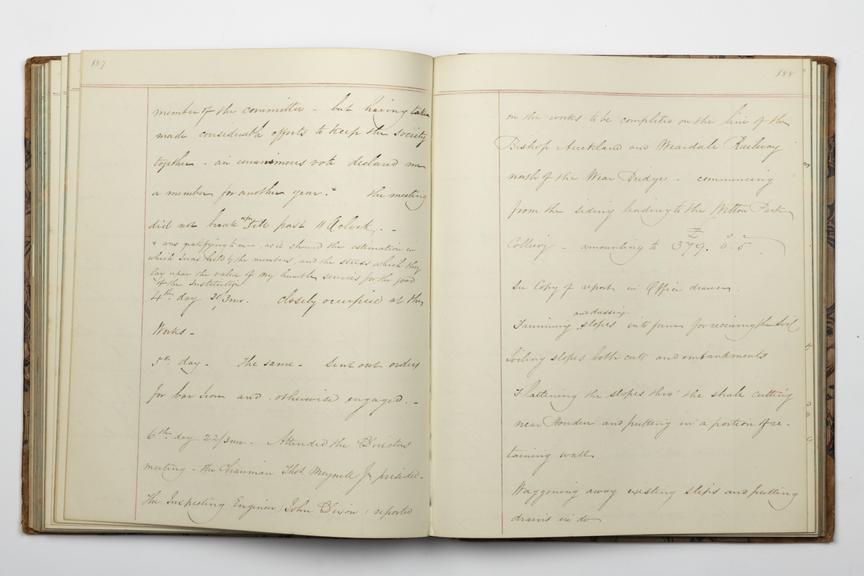 187
member of the committee - but having taken
made considerable efforts to keep the society
together - an unanimous vote declared me
a member for another year. + the meeting
did not break up till past 11 O'clock. -
+ was gratifying to me, as it showed the estimation in
which I was held by the members, and the stress which they
lay upon the value of my humble services for the good
of the Institution
4th day 20/3mo. closely occupied at the
Works -
5th day. The same - Sent out orders
for bar Iron and otherwise engaged. -
6th day 22/3mo. Attended the Directors
meeting - the Chairman Thos Meynell Jr presided -
The Inspecting Engineer (John Dixon) reported
188
on the works to be completed on the line of the
Bishop Auckland and Weardale Railway
north of the Wear Bridge - commencing
from the siding leading to the Witton Park
Colliery - amounting to £379. 0. 5
See Copy of report in Office drawer.
Trimming and dressing slopes into form for receiving the Soil
Soiling slopes both cuts and embankments
Flattening the slopes thro' the shale cutting
near and putting in a portion of re-
taining wall
Waggoning away existing slips and putting
drains in do